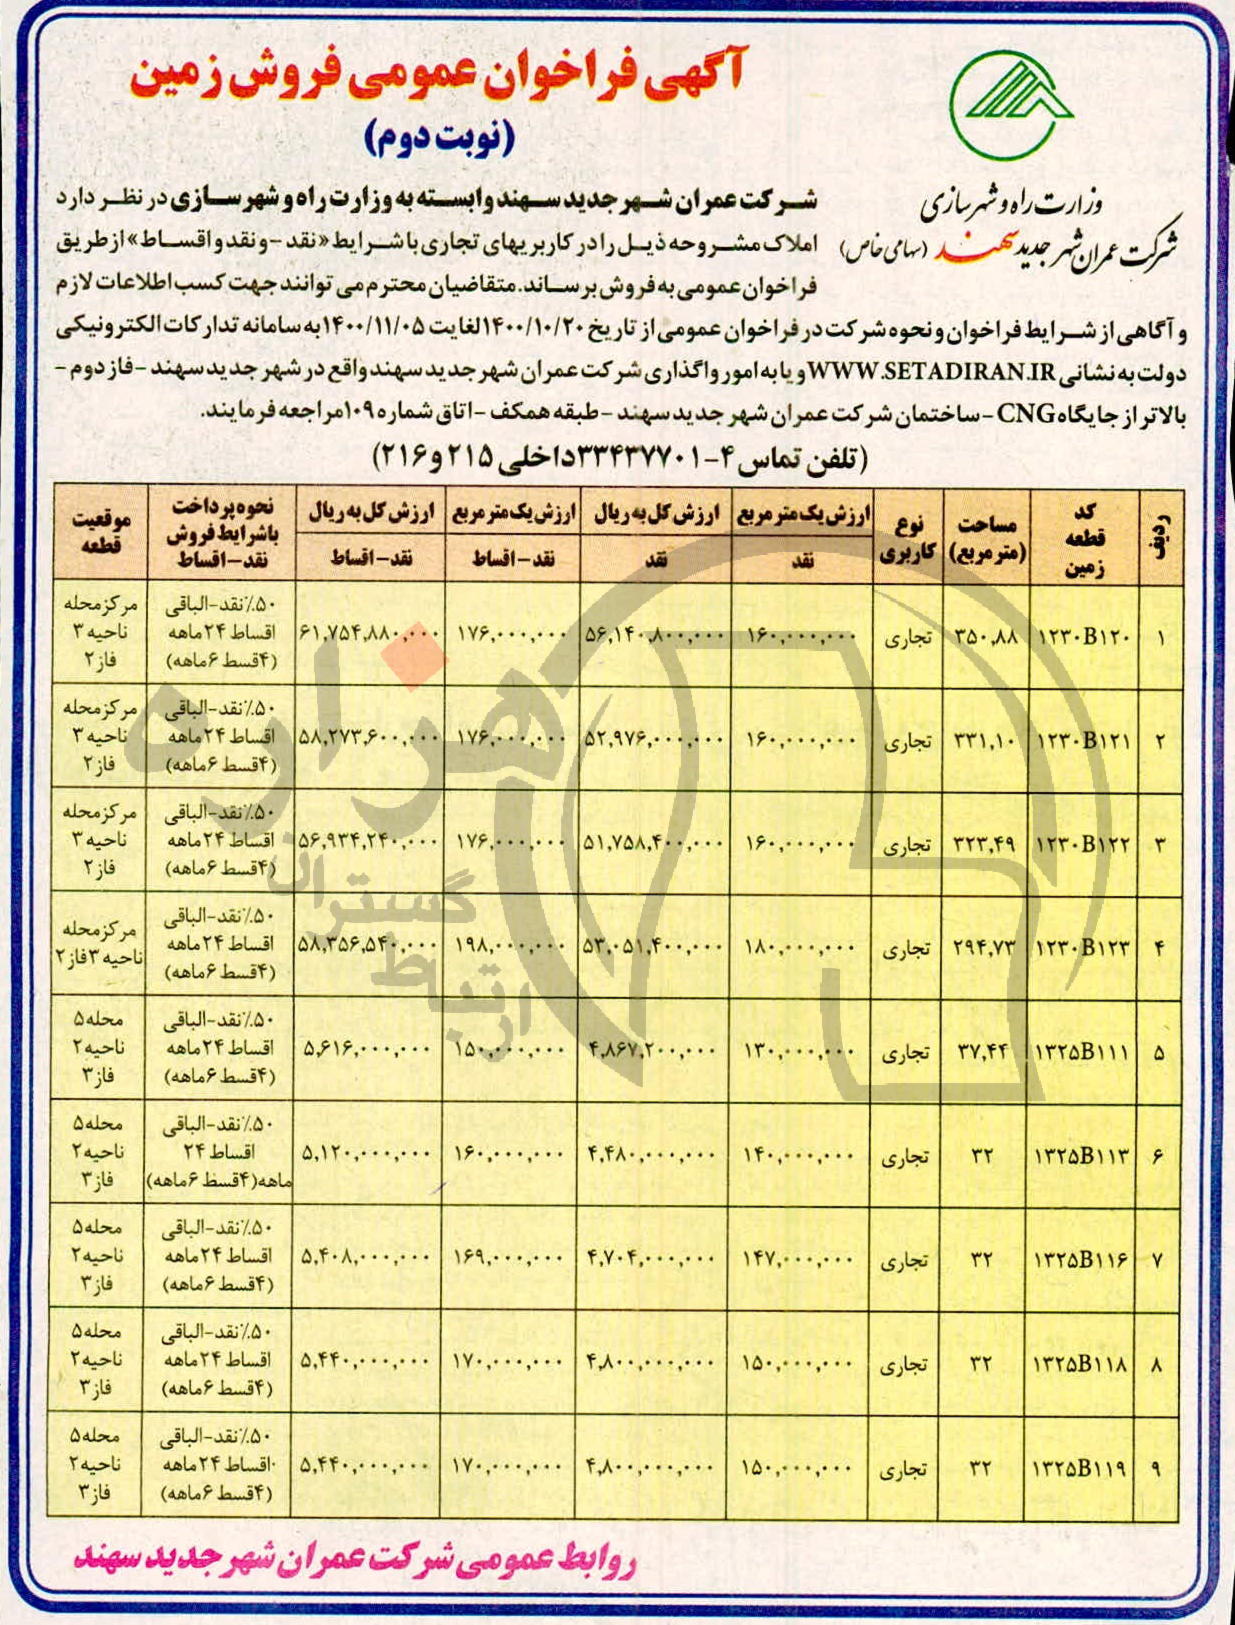 آگهی فراخوان عمومی فروش زمین
(نوبت دوم)
وزارت راه و شهرسازی
شرکت عمران شهر جدید سهند (سهامی خاص)
شرکت عمران شهر جدید سهند وابسته به وزارت راه و شهرسازی در نظر دارد
املاک مشروحه ذیل را در کاربریهای تجاری با شرایط «نقد - و نقد و اقساط» از طریق
فراخوان عمومی به فروش برساند. متقاضیان محترم می توانند جهت کسب اطلاعات لازم
و آگاهی از شرایط فراخوان و نحوه شرکت در فراخوان عمومی از تاریخ ۱۴۰۰/۱۰/۲۰ لغایت ۱۴۰۰/۱۱/۰۵ به سامانه تدارکات الکترونیکی
دولت به نشانی WWW.SETADIRAN.IR و یا به امور واگذاری شرکت عمران شهر جدید سهند واقع در شهر جدید سهند - فاز دوم -
بالاتر از جایگاه CNG - ساختمان شرکت عمران شهر جدید سهند - طبقه همکف - اتاق شماره ۱۰۹ مراجعه فرمایند.
(تلفن تماس ۴-۳۳۴۳۷۷۰۱ داخلی ۲۱۵ و ۲۱۶)
ردیف | کد قطعه زمین | مساحت (متر مربع) | نوع کاربری | ارزش یک متر مربع نقد | ارزش کل به ریال نقد | ارزش یک متر مربع نقد - اقساط | ارزش کل به ریال نقد - اقساط | نحوه پرداخت با شرایط فروش نقد - اقساط | موقعیت قطعه
۱ | ۱۲۳۰B۱۲۰ | ۳۵۰,۸۸ | تجاری | ۱۶۰,۰۰۰,۰۰۰ | ۵۶,۱۴۰,۸۰۰,۰۰۰ | ۱۷۶,۰۰۰,۰۰۰ | ۶۱,۷۵۴,۸۸۰,۰۰۰ | ۵۰٪ نقد - الباقی اقساط ۲۴ ماهه (۴ قسط ۶ ماهه) | مرکز محله ناحیه ۳ فاز ۲
۲ | ۱۲۳۰B۱۲۱ | ۳۳۱,۱۰ | تجاری | ۱۶۰,۰۰۰,۰۰۰ | ۵۲,۹۷۶,۰۰۰,۰۰۰ | ۱۷۶,۰۰۰,۰۰۰ | ۵۸,۲۷۳,۶۰۰,۰۰۰ | ۵۰٪ نقد - الباقی اقساط ۲۴ ماهه (۴ قسط ۶ ماهه) | مرکز محله ناحیه ۳ فاز ۲
۳ | ۱۲۳۰B۱۲۲ | ۳۲۳,۴۹ | تجاری | ۱۶۰,۰۰۰,۰۰۰ | ۵۱,۷۵۸,۴۰۰,۰۰۰ | ۱۷۶,۰۰۰,۰۰۰ | ۵۶,۹۳۴,۲۴۰,۰۰۰ | ۵۰٪ نقد - الباقی اقساط ۲۴ ماهه (۴ قسط ۶ ماهه) | مرکز محله ناحیه ۳ فاز ۲
۴ | ۱۲۳۰B۱۲۳ | ۲۹۴,۷۳ | تجاری | ۱۸۰,۰۰۰,۰۰۰ | ۵۳,۰۵۱,۴۰۰,۰۰۰ | ۱۹۸,۰۰۰,۰۰۰ | ۵۸,۳۵۶,۵۴۰,۰۰۰ | ۵۰٪ نقد - الباقی اقساط ۲۴ ماهه (۴ قسط ۶ ماهه) | مرکز محله ناحیه ۳ فاز ۲
۵ | ۱۳۲۵B۱۱۱ | ۳۷,۴۴ | تجاری | ۱۳۰,۰۰۰,۰۰۰ | ۴,۸۶۷,۲۰۰,۰۰۰ | ۱۵۰,۰۰۰,۰۰۰ | ۵,۶۱۶,۰۰۰,۰۰۰ | ۵۰٪ نقد - الباقی اقساط ۲۴ ماهه (۴ قسط ۶ ماهه) | محله ۵ ناحیه ۲ فاز ۳
۶ | ۱۳۲۵B۱۱۳ | ۳۲ | تجاری | ۱۴۰,۰۰۰,۰۰۰ | ۴,۴۸۰,۰۰۰,۰۰۰ | ۱۶۰,۰۰۰,۰۰۰ | ۵,۱۲۰,۰۰۰,۰۰۰ | ۵۰٪ نقد - الباقی اقساط ۲۴ ماهه (۴ قسط ۶ ماهه) | محله ۵ ناحیه ۲ فاز ۳
۷ | ۱۳۲۵B۱۱۶ | ۳۲ | تجاری | ۱۴۷,۰۰۰,۰۰۰ | ۴,۷۰۴,۰۰۰,۰۰۰ | ۱۶۹,۰۰۰,۰۰۰ | ۵,۴۰۸,۰۰۰,۰۰۰ | ۵۰٪ نقد - الباقی اقساط ۲۴ ماهه (۴ قسط ۶ ماهه) | محله ۵ ناحیه ۲ فاز ۳
۸ | ۱۳۲۵B۱۱۸ | ۳۲ | تجاری | ۱۵۰,۰۰۰,۰۰۰ | ۴,۸۰۰,۰۰۰,۰۰۰ | ۱۷۰,۰۰۰,۰۰۰ | ۵,۴۴۰,۰۰۰,۰۰۰ | ۵۰٪ نقد - الباقی اقساط ۲۴ ماهه (۴ قسط ۶ ماهه) | محله ۵ ناحیه ۲ فاز ۳
۹ | ۱۳۲۵B۱۱۹ | ۳۲ | تجاری | ۱۵۰,۰۰۰,۰۰۰ | ۴,۸۰۰,۰۰۰,۰۰۰ | ۱۷۰,۰۰۰,۰۰۰ | ۵,۴۴۰,۰۰۰,۰۰۰ | ۵۰٪ نقد - الباقی اقساط ۲۴ ماهه (۴ قسط ۶ ماهه) | محله ۵ ناحیه ۲ فاز ۳
هزاره
گستران
ارتباط
روابط عمومی شرکت عمران شهر جدید سهند